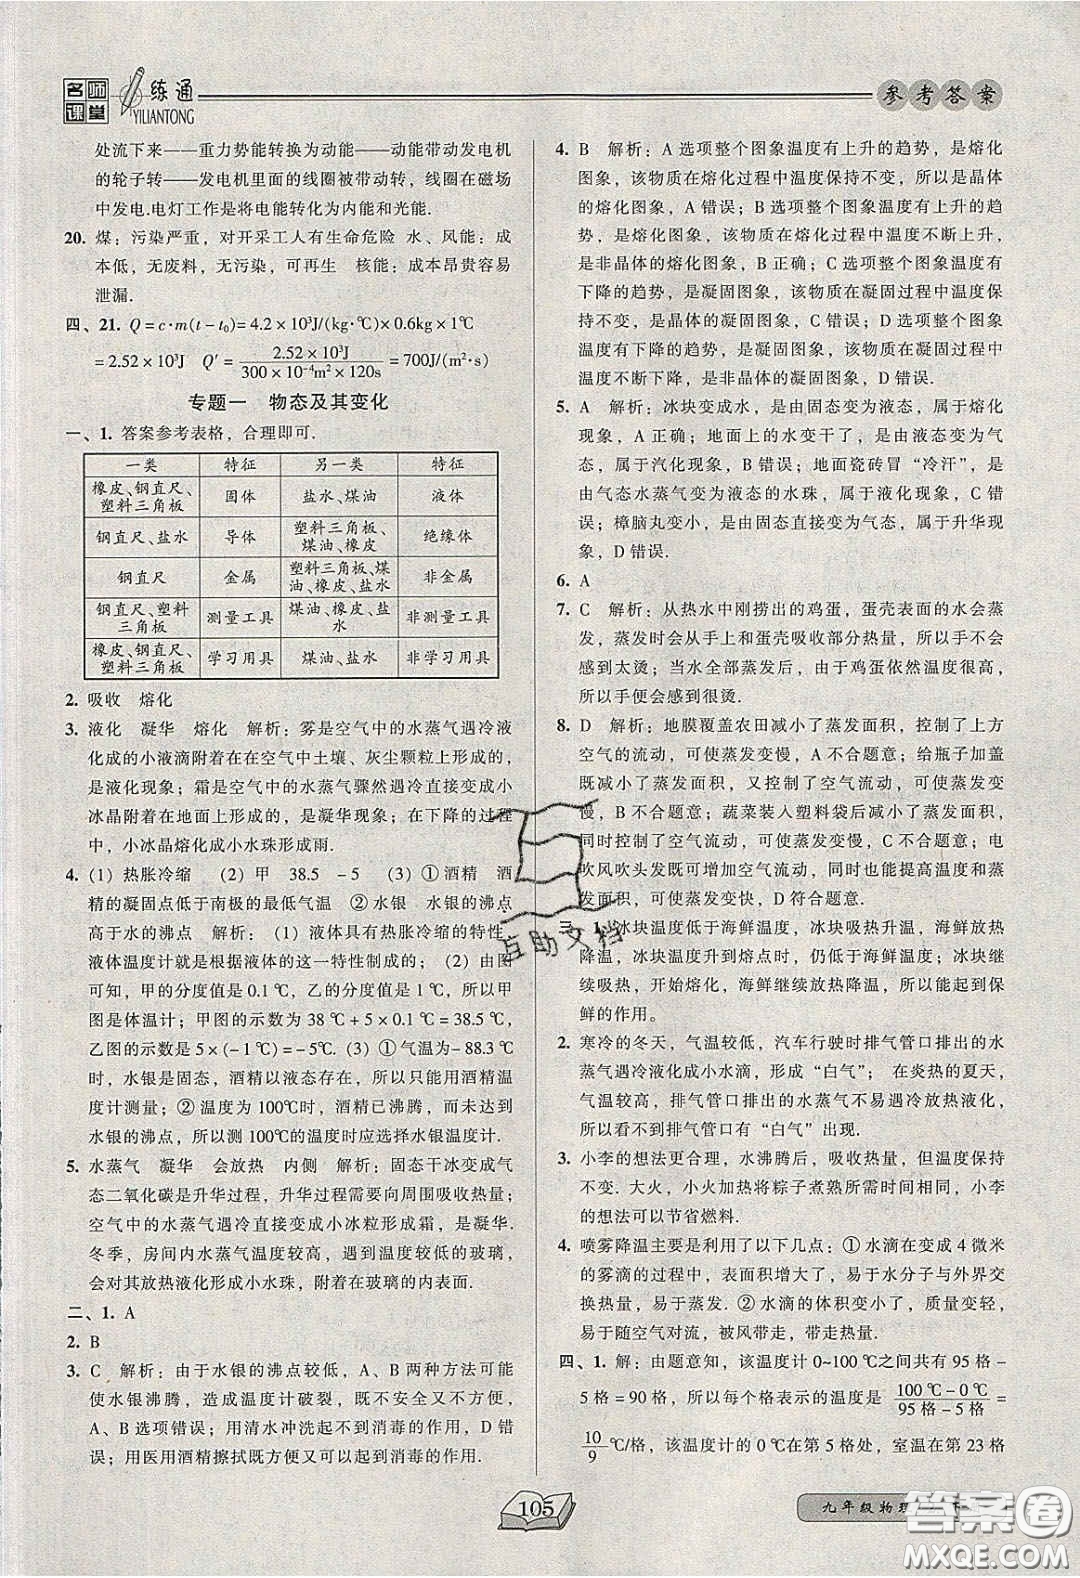 名师课堂
一练通
YILIANTONG
参考答案
处流下来——重力势能转换为动能——动能带动发电机
的轮子转——发电机里面的线圈被带动转，线圈在磁场
中发电.电灯工作是将电能转化为内能和光能.
20. 煤：污染严重，对开采工人有生命危险 水、风能：成
本低，无废料，无污染，可再生 核能：成本昂贵容易
泄漏.
四、21. Q＝c·m(t－t₀)＝4.2×10³J/(kg·℃)×0.6kg×1℃
＝2.52×10³J Q′＝2.52×10³J/(300×10⁻⁴m²×120s)＝700J/(m²·s)
专题一 物态及其变化
一、1. 答案参考表格，合理即可.
一类 特征 另一类 特征
橡皮、钢直尺、塑料三角板 固体 盐水、煤油 液体
钢直尺、盐水 导体 塑料三角板、煤油、橡皮 绝缘体
钢直尺 金属 塑料三角板、煤油、橡皮、盐水 非金属
钢直尺、塑料三角板 测量工具 煤油、橡皮、盐水 非测量工具
橡皮、钢直尺、塑料三角板 学习用具 煤油、盐水 非学习用具
2. 吸收 熔化
3. 液化 凝华 熔化 解析：雾是空气中的水蒸气遇冷液
化成的小液滴附着在在空气中土壤、灰尘颗粒上形成的，
是液化现象；霜是空气中的水蒸气骤然遇冷形成的小
冰晶附着在地面上形成的，是凝华现象；在下降的过程
中，小冰晶熔化成小水珠形成雨.
4. (1) 热胀冷缩 (2) 甲 38.5 －5 (3) ①酒精 酒
精的凝固点低于南极的最低气温 ②水银 水银的沸点
高于水的沸点 解析：(1) 液体具有热胀冷缩的特性，
液体温度计就是根据液体的这一特性制成的；(2) 由图
可知，甲的分度值是0.1℃，乙的分度值是1℃，所以甲
图是体温计；甲图的示数为38℃＋5×0.1℃＝38.5℃，
乙图的示数是5×(－1℃)＝－5℃. (3) ①气温为－88.3℃
时，水银是固态，酒精以液态存在，所以用酒精温
度计测量；②温度为100℃时，酒精已沸腾，而未达到
水银的沸点，所以测100℃的温度时应选择水银温度计.
5. 水蒸气 凝华 会放热 内侧 解析：固态干冰变成气
态二氧化碳是升华过程，升华过程需要向周围吸收热量；
空气中的水蒸气遇冷直接变成小冰粒形成霜，是凝华.
冬季，房间内水蒸气温度较高，遇到温度较低的玻璃，
会对其放热液化形成小水珠，附着在玻璃的内表面.
二、1. A
2. B
3. C 解析：由于水银的沸点较低，A、B两种方法可能
使水银沸腾，造成温度计破裂，体温计不能正常使用，
A、B选项错误；用清水冲洗起不到消毒的作用，D错
误；用医用酒精擦拭既方便又可以起到消毒的作用.
4. B 解析：A选项整个图象温度有上升的趋势，是熔化
图象，该物质在熔化过程中温度保持不变，所以是晶体
的熔化图象，A错误；B选项整个图象温度有上升的趋
势，是熔化图象，该物质在熔化过程中温度不断上升，
是非晶体的熔化图象，B正确；C选项整个图象温度有
下降的趋势，是凝固图象，该物质在凝固过程中温度保
持不变，是晶体的凝固图象，C错误；D选项整个图象
温度有下降的趋势，是凝固图象，该物质在凝固过程中
温度不断下降，是非晶体的凝固图象，D错误.
5. A 解析：冰块变成水，是由固态变为液态，属于熔化
现象，A正确；地面上的水变干了，是由液态变为气
态，属于汽化现象，B错误；地面瓷砖冒“冷汗”，是
由气态水蒸气变为液态的水珠，属于液化现象，C错
误；樟脑丸变小，是由固态直接变为气态，属于升华现
象，D错误.
6. A
7. C 解析：从热水中刚捞出的鸡蛋，蛋壳表面的水会蒸
发，蒸发时会从手上和蛋壳吸收部分热量，所以手不会
感到太烫；当水全部蒸发后，由于鸡蛋依然温度很高，
所以手便会感到很烫.
8. D 解析：地膜覆盖农田减小了蒸发面积，控制了上方
空气的流动，可使蒸发变慢，A不合题意；给瓶子加盖
既减小了蒸发面积，又控制了空气流动，可使蒸发变
慢，B不合题意；蔬菜装入塑料袋后减小了蒸发面积，
同时控制了空气流动，可使蒸发变慢，C不合题意；电
吹风吹头发既可增加空气流动，又能提高温度和增大蒸
发面积，可使蒸发变快，D符合题意.
三、1. 冰块温度低于海鲜温度，冰块吸热升温，海鲜放热
降温，冰块升到熔点时，仍低于海鲜温度，冰块继
续吸热，开始熔化，海鲜继续放热降温，所以起到保
鲜的作用。
2. 寒冷的冬天，气温较低，汽车行驶时排气管口排出的水
蒸气遇冷液化成小水滴，形成“白气”； 在炎热的夏天，
气温较高，排气管口排出的水蒸气不易遇冷放热液化，
所以看不到排气管口有“白气”出现.
3. 小李的想法更合理，水沸腾后，吸收热量，但温度保持
不变. 大火，小火加热将粽子煮熟所需时间相同，小李
的想法可以节省燃料.
4. 喷雾降温主要是利用了以下几点：①水滴在变成4微米
的雾滴的过程中，表面积增大，易于水分子与外界交
换热量，易于蒸发. ②水滴的体积变小了，质量变轻，
易于随空气对流，被风带走，带走热量.
四、1. 解：由题意知，该温度计0~100℃之间共有95格－
5格＝90格，所以每个格表示的温度是(100℃－0℃)/(95格－5格)＝
10/9℃/格，该温度计的0℃在第5格处，室温在第23格
互助文档
105
九年级物理
答案圈
MXQE.COM